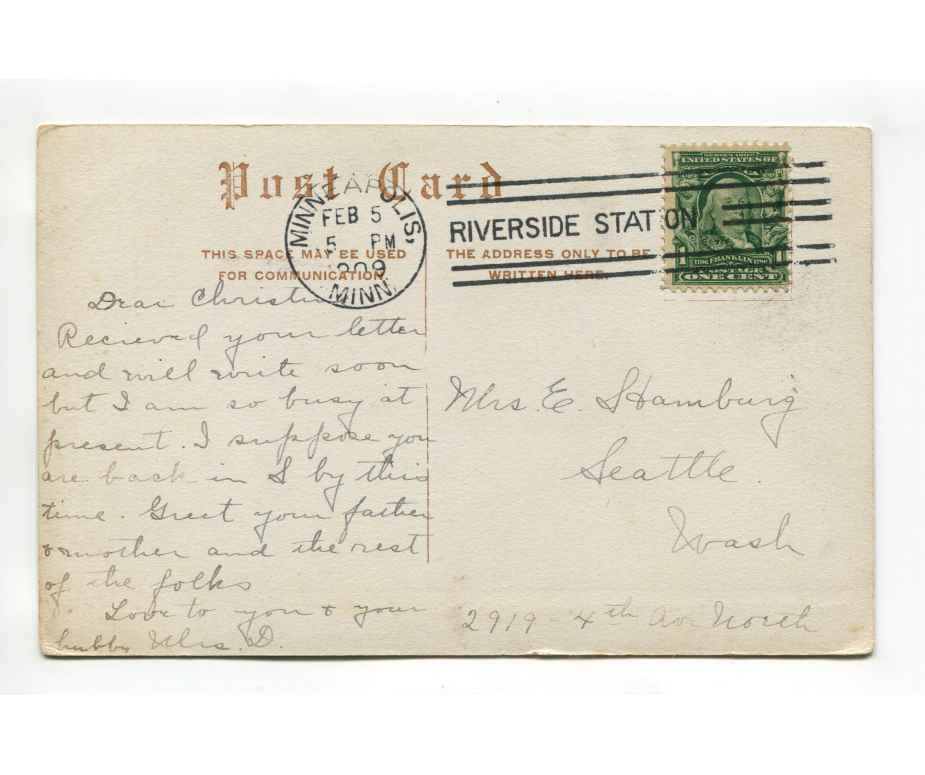 Post Card
MINNEAPOLIS,
FEB 5
5 PM
1909
MINN.
RIVERSIDE STATION
UNITED STATES OF
FRANKLIN
ONE CENT
THIS SPACE MAY BE USED
FOR COMMUNICATION.
THE ADDRESS ONLY TO BE
WRITTEN HERE.
Dear
Recieved your letter
and will write soon
but I am so busy at
present. I suppose you
are back in S by this
time. Greet your father
& mother and the rest
of the folks
Love to you & your
hubby Mrs. D.
Mrs. E. Hamburg
Seattle.
Wash
2919 - 4th Av. North